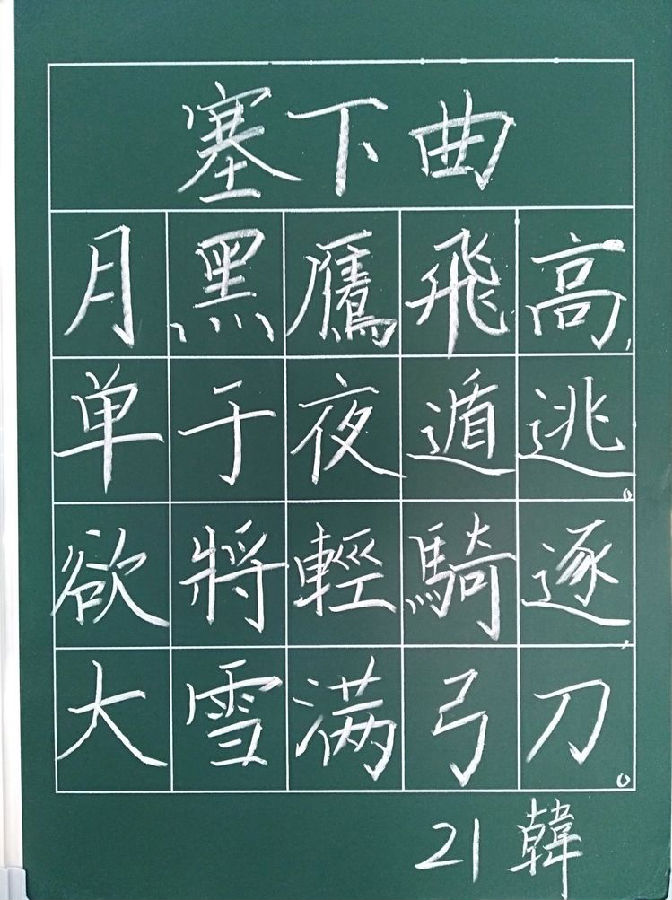 塞下曲
月黑鷹飛高，
单于夜遁逃。
欲將輕騎逐，
大雪满弓刀。
21韓